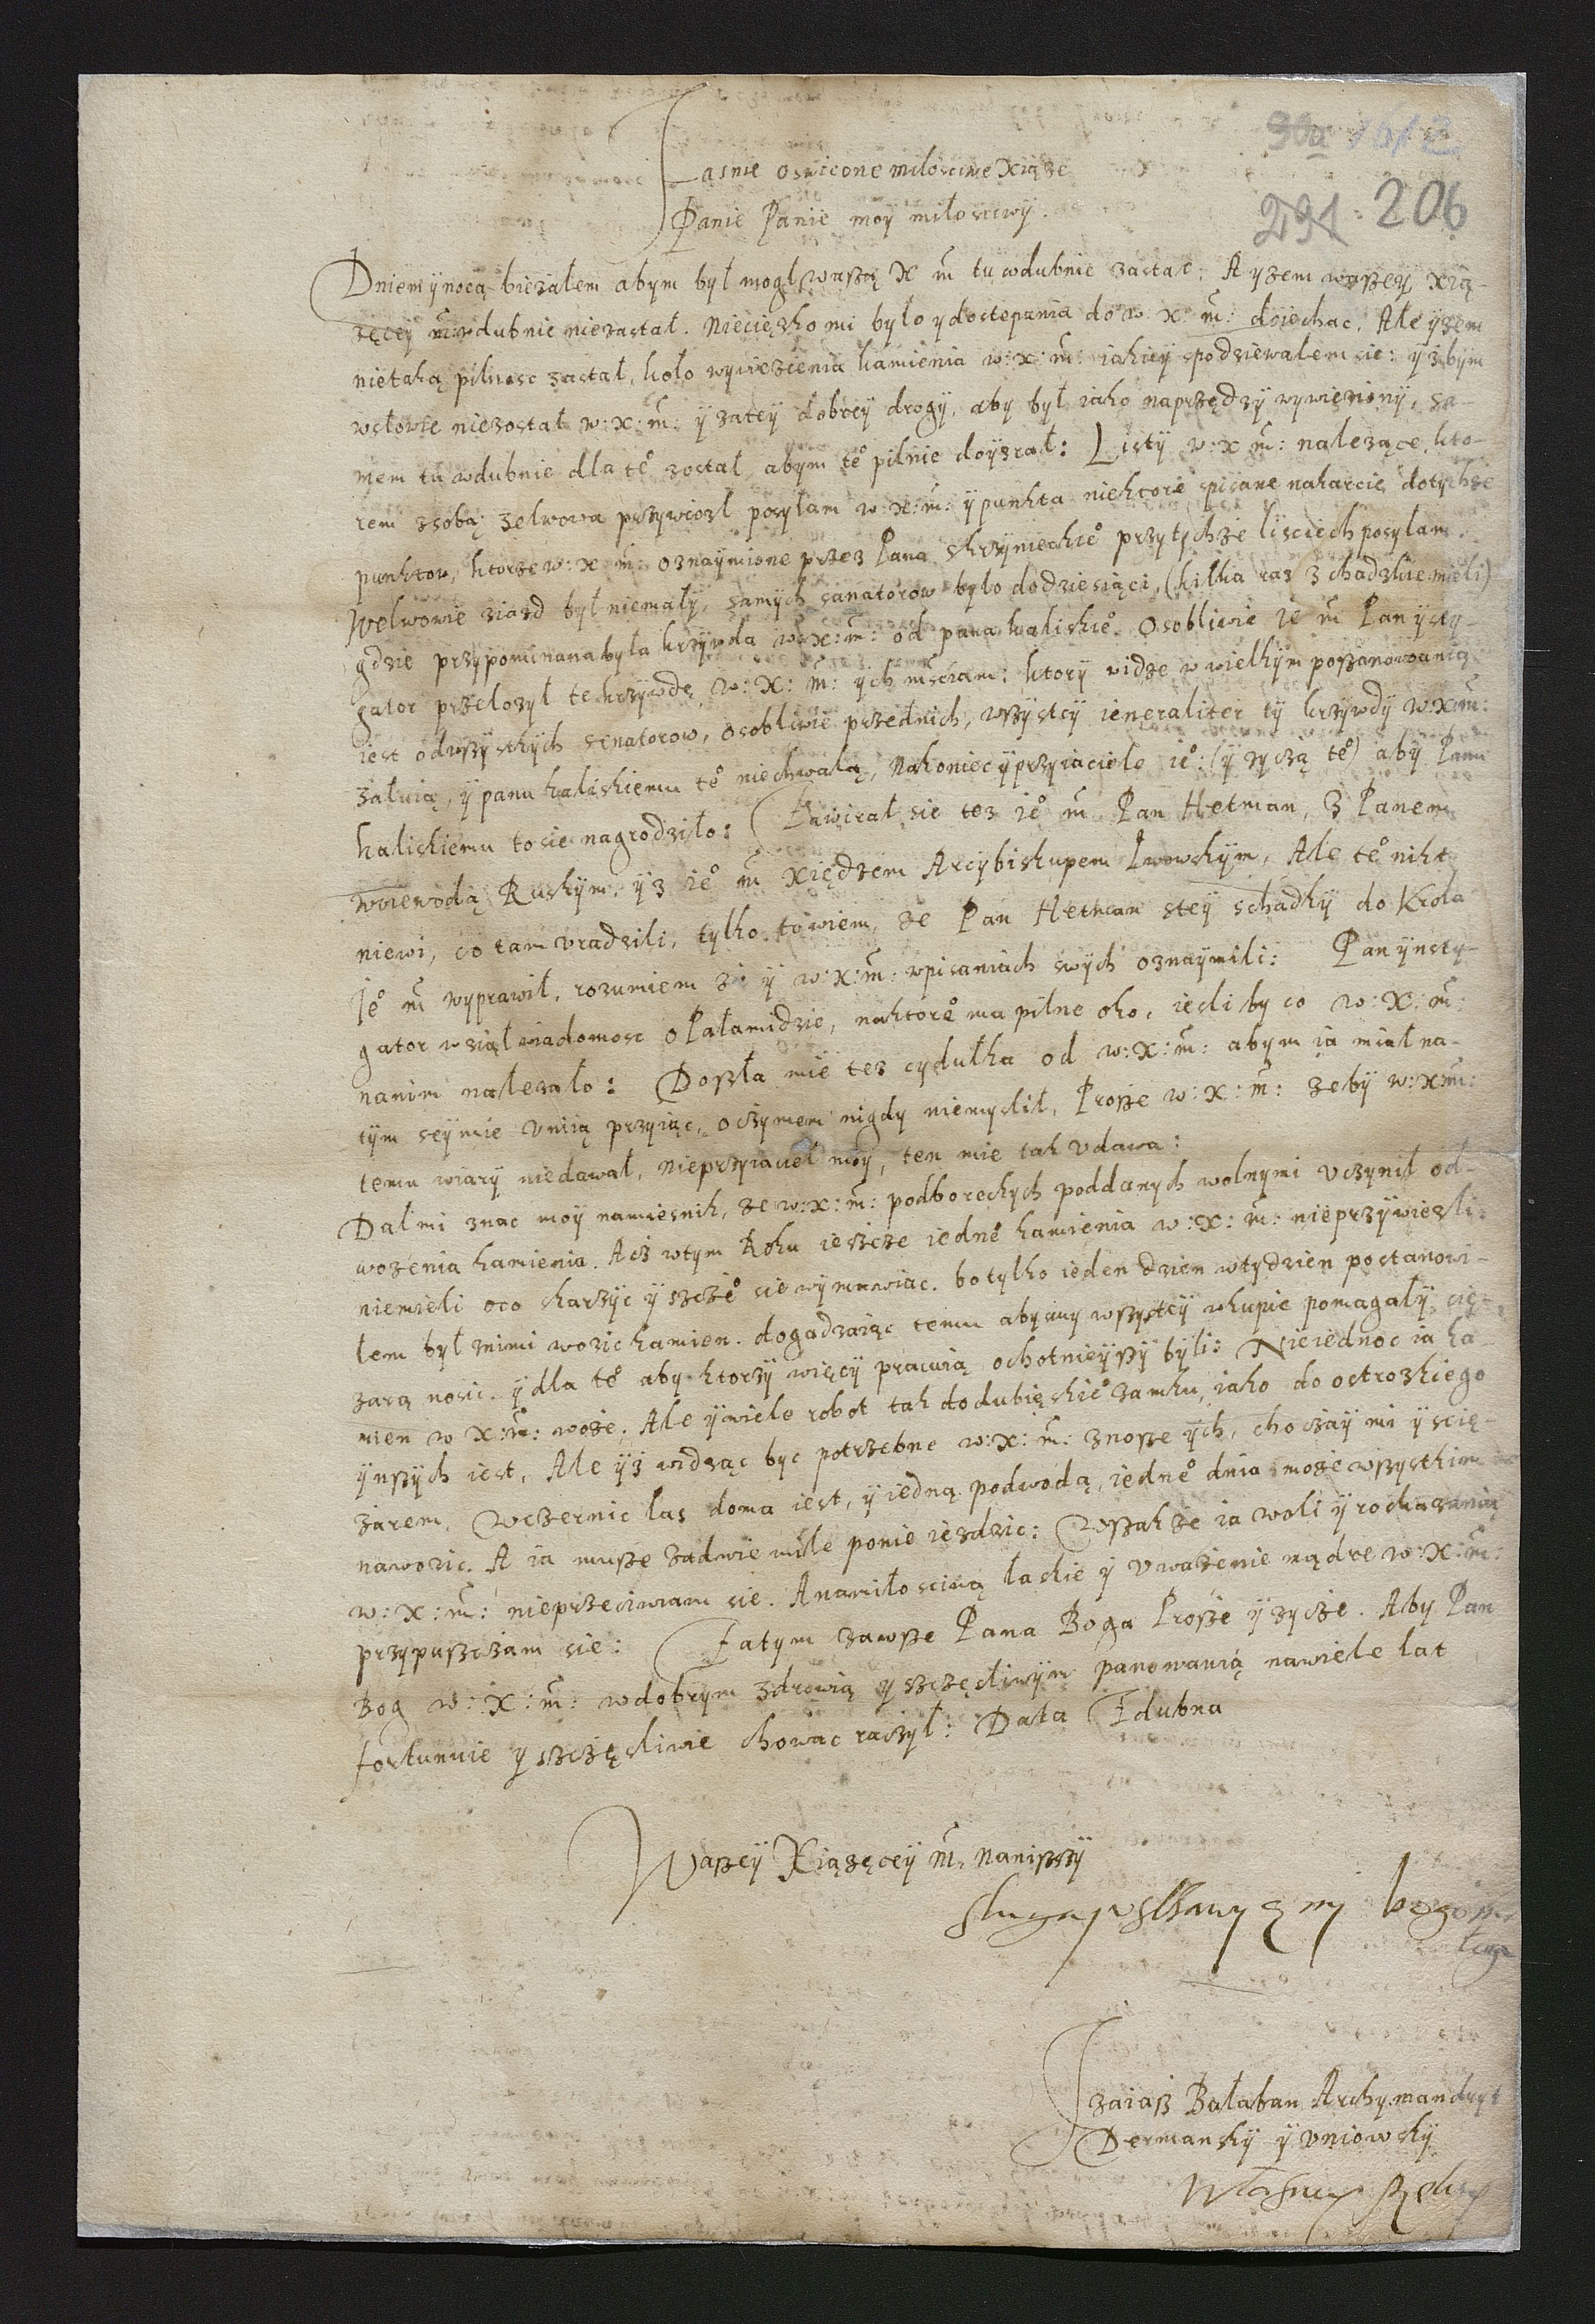 30a 1612
291. 206
Iasnie oswicone milosciwe Xiąze
Panie Panie moÿ miłosciwÿ.
Dniem ÿ nocą biezałem abym był mogł waßą X m̃ tu wdubnie zastac. A yzem waßeÿ Xią-
zęceÿ m̃: wdubnie niezastał. Niecięzko mi było ydostepania do w: x: m̃: dziechac. Ale ÿzem
nietaką pilnosc zastał, koło wywiezienia kamienia w: x: m̃: iakieÿ spodziewałem sie: ÿ zbym
wsłowie niezostał w: x: m̃: ÿ zateÿ dobreÿ drogÿ, aby był iako naprzędzÿ wywięzionÿ, sa-
mem tu wdubnie dla te° został abym te° pilnie doÿzrał: Listÿ w: x m̃: nalezące, kto-
rem zsobą zelwowa przywiozł posyłam w: x: m̃: ÿ punkta niektore spisane nakarcie dotychze
punktow, ktorze w: x m̃: oznaÿmione przez Pana Skrzyneckie° przytychze lisciech posyłam.
Welwowie ziazd był niemałÿ, samych sanatorow było dodziesiąci, (kilka raz zchadzkie mieli)
gdzie przypominana była krzywda w: x: m̃: od pana kaliskie°. Osobliwie ie m̃ Pan ÿsty-
gator przełozył te krzÿwdę w: x: m̃: ÿch mściam: ktorÿ widze w wielkÿm poßanowanią
iest odwßÿstkÿch senatorow, osobliwie przednich, wßÿstcÿ ieneraliter tÿ krzÿwdÿ w: x m̃:
załuią, ÿ panu kaliskiemu te° niechwalą, Nakoniec ÿ przyiaciele ie°: (ÿ zyczą te°) aby Panu
kaliskiemu to sie nagrodziło: Zawirał sie tez ie° m̃ Pan Hetman, z Panem
woiewodą Ruskÿm: ÿ z ie° m̃ Xiędzem Arcybiskupem Lwowskÿm, Ale te° nikt
niewi, co tam vradzili, tylko to wiem, ze Pan Hetman steÿ schadkÿ do Krola
Je° m̃ wyprawił, rozumiem zi ÿ w: x: m̃: wpisaniach swÿch oznaÿmili: Pan ÿnsty-
gator wziął wiadomosc o Pałamidzie, naktore° ma pilne oko, iesli by co w: x: m̃:
nanim nalezało: Doßła mie tez cydułka od w: x: m̃: abym ia miał na-
tÿm seÿmie Vniią przyiąc, oczymem nigdy niemyslił, Proße w: x: m̃: zebÿ w: x m̃:
temu wiarÿ niedawał, nieprzyiaciel moÿ, ten mie tak vdawa:
Dał mi znac moÿ namiesnik, ze w: x: m̃: podboreckych poddanych wolnymi vczynił od-
wozenia kamienia. Acz wtym Roku ieszcze iedne° kamienia w: x: m̃: nieprzÿwiezli.
niemieli oco skarzÿc ÿ szcze° sie wÿmawiac. bo tylko ieden dzien wtÿdzien postanowi-
łem był znimi wozic kamien. dogadzaiąc temu abysmy wßÿstcÿ wkupie pomagałÿ cię-
zarą nosic. ÿ dla te° aby ktorzÿ więcÿ pracuią ochotnieÿßÿ byli: Nieiednoc ia ka-
mien w x: m̃: woze. Ale ÿ wiele robot tak dodubięskie° zamku, iako do ostrozkiego
ÿnßÿch iest. Ale ÿz widząc byc potrzebne w: x: m̃: znoße ÿch, choczaÿ mi ÿ scię-
zarem. Wczernic las doma iest, ÿ iedną podwodą, iedne° dnia moze wßÿstkim
nawozic. A ia muße zadwie mile ponie iezdzic: Wßakze ia woli ÿ roskazanią
w: x: m̃: nieprzeciwiam sie. Anamiłosciwą łaskie ÿ vwazenie mądre w: x: m̃:
przypußczam sie: Zatym zawße Pana Boga Proße ÿ zycze. Aby Pan
Bog w: x: m̃: wdobrym zdrowią ÿ szczęsliwÿm panowanią nawiele lat
fortunnie ÿ szczęsliwie chowac raczÿł: Data Zdubna
Waßeÿ Xiązęceÿ m̃: nanißßÿ
sluga ustawyczny bogomo
lca
Izaiaß Bałaban Archymandryt
Dermanskÿ ÿ Vniowskÿ
własną ręką